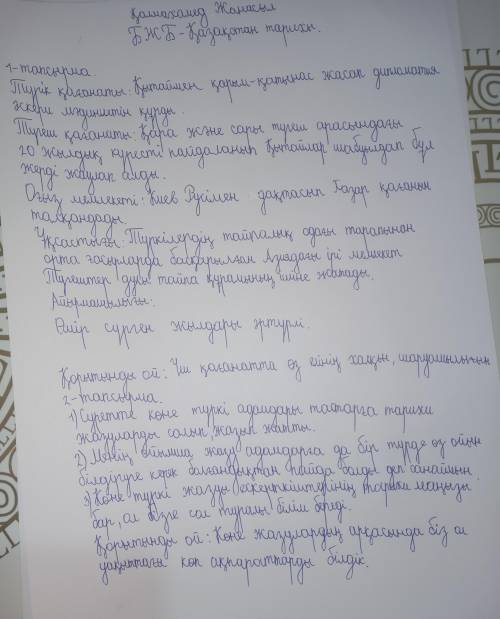 Қалмахамед Жанасыл
БЖБ-Қазақстан тарихы.
1-тапсырма.
Түрік қағанаты: Қытаймен қарым-қатынас жасап дипломатия
әскери мәдениетін құрды.
Түргеш қағанаты: Қара және сары түргеш арасындағы
20 жылдық күресті пайдаланып Қытайлар шабуылдап бұл
жерді жаулап алды.
Оғыз мемлекеті: Киев Русімен одақтасып Хазар қағанын
талқандады.
Ұқсастығы: Түркілердің тайпалық одағы тарапынан
орта ғасырларда басқарылған Азиядағы ірі мемлекет
Түргештер дулу тайпа құрамының ішіне жатады.
Айырмашылығы:
Өмір сүрген жылдары әртүрлі.
Қорытынды ой: Үш қағанатта өз елінің халқын, шаруашылығын
2-тапсырма.
1) Суретте көне түркі адамдары тастарға тарихи
жазуларды салып, жазып жатты.
2) Менің ойымша жазу адамдарға да бір түрде өз ойын
білдіруге керек болғандықтан пайда болды деп санаймын.
3) Көне түркі жазуы ескерткіштерінің тарихи маңызы
бар, ол бізге сол туралы білім береді.
Қорытынды ой: Көне жазулардың арқасында біз ол
уақыттағы көп ақпараттарды білдік.